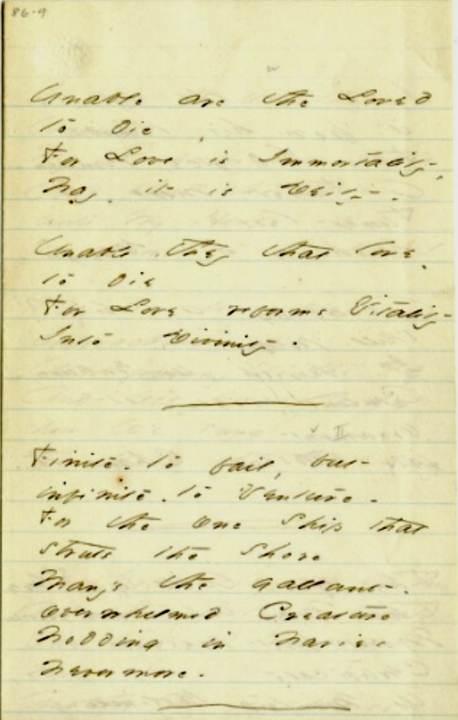 86-9
Unable are the Loved
to die
For Love is Immortality,
Nay, it is Deity -
Unable they that love.
to die
For Love reforms Vitality
Into Divinity.
II
Finite. to fail, but
infinite. to Venture -
For the one Ship that
struts the Shore
Many's the gallant -
overwhelmed Creature
Nodding in Navies
nevermore -